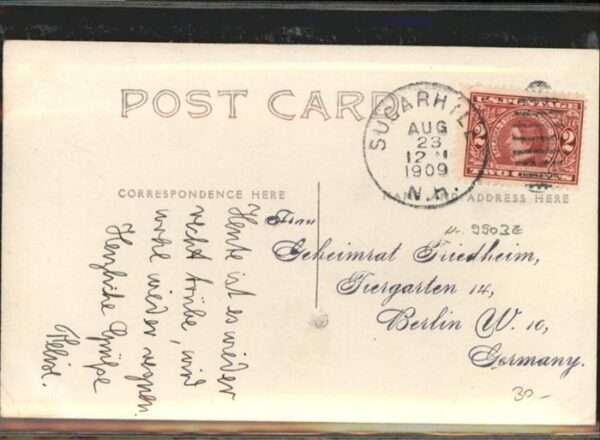 POST CARD
SUGARHILL
AUG
23
1909
N.H.
2
2
CORRESPONDENCE HERE
NAME AND ADDRESS HERE
Heute ist es wieder
recht trübe, wird
wohl wieder regnen.
Herzliche Grüße
Frau
Geheimrat Friedheim,
Tiergarten 14,
Berlin W. 10,
Germany.
30-